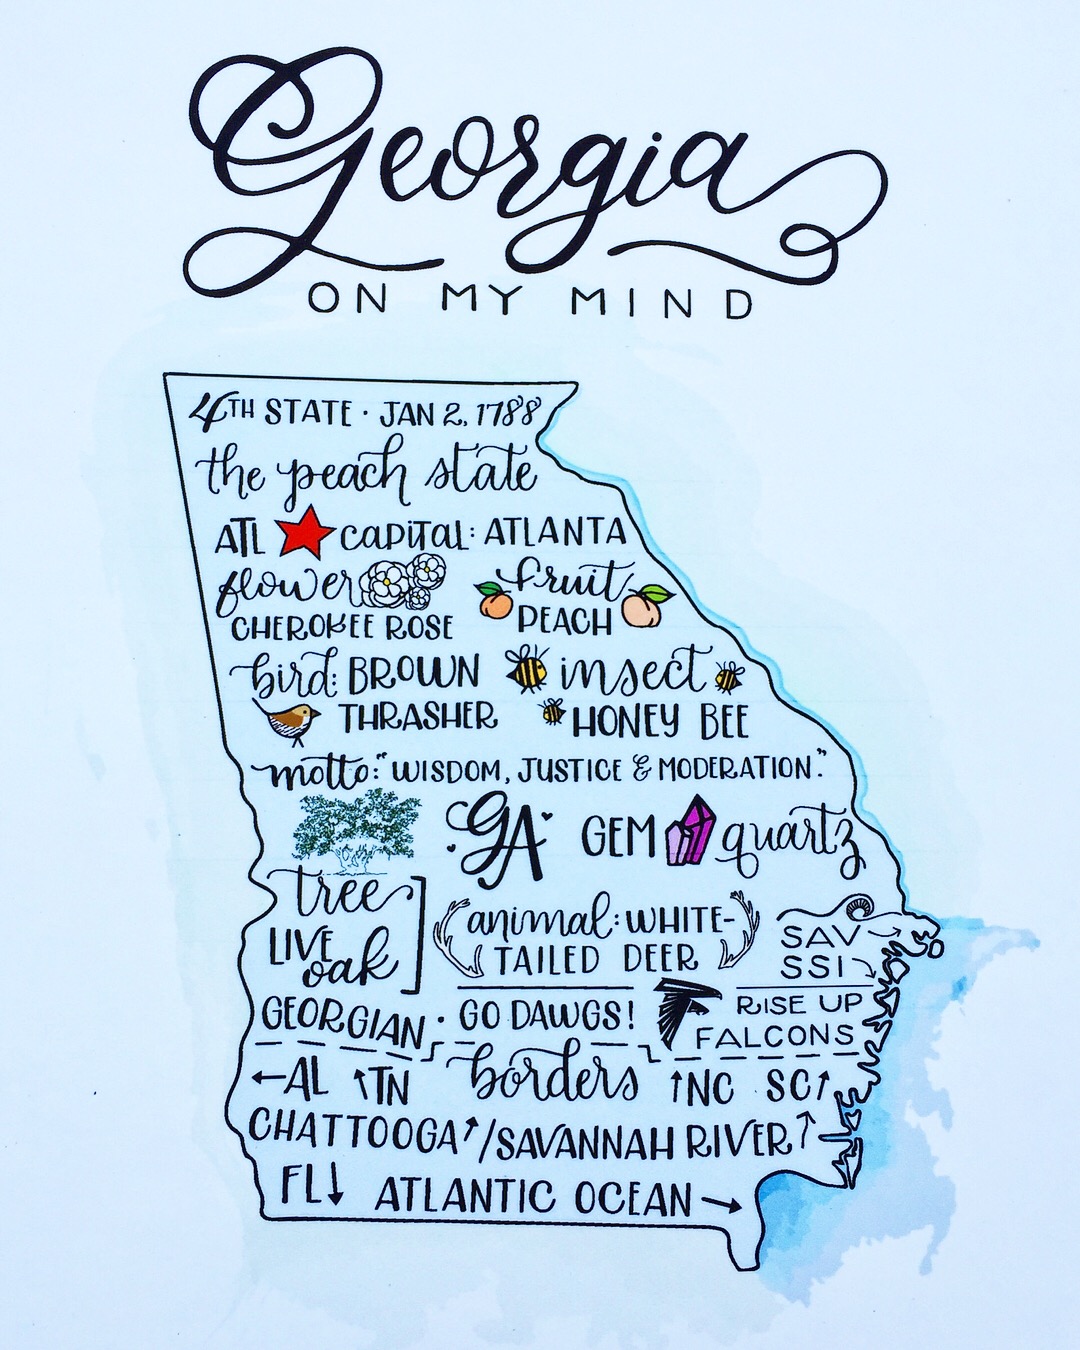 Georgia
ON MY MIND
4TH STATE · JAN 2, 1788
the peach state
ATL ★ CAPITAL: ATLANTA
flower
CHEROKEE ROSE
fruit
PEACH
bird: BROWN
THRASHER
insect
HONEY BEE
motto: "WISDOM, JUSTICE & MODERATION."
GA
GEM quartz
tree
LIVE
oak
animal: WHITE-
TAILED DEER
SAV→
SSI→
GEORGIAN · GO DAWGS!
RISE UP
FALCONS
borders
←AL ↑TN ↑NC SC↑
CHATTOOGA↑/SAVANNAH RIVER↑
FL↓ ATLANTIC OCEAN→